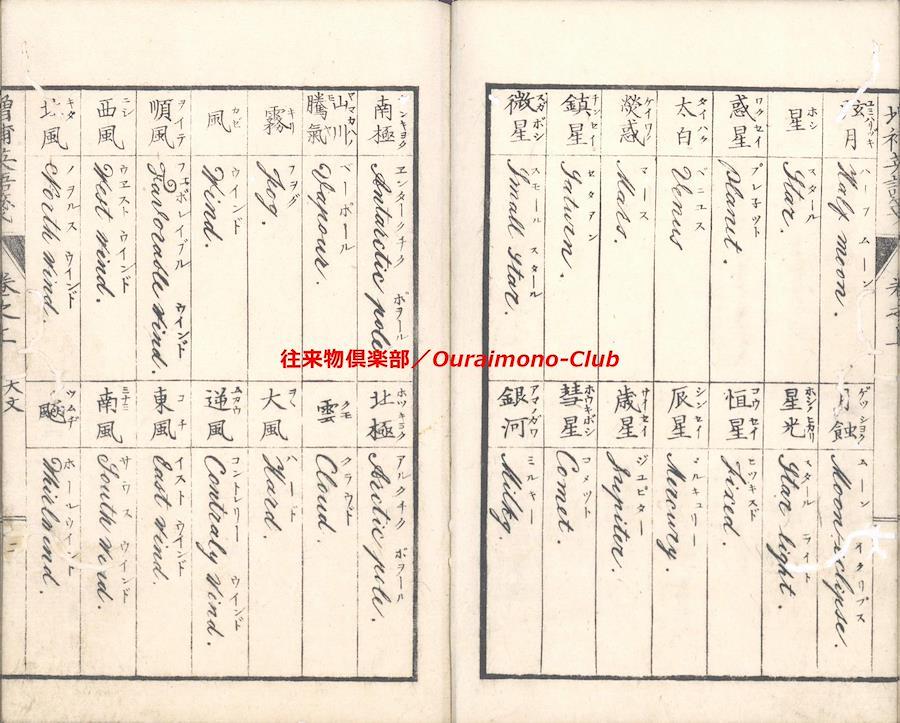 弦月 ユミハリツキ
Half moon. ハーフ ムーン
星 ホシ
Star. スタール
惑星 ワクセイ
planut. プレ子ツト
太白 タイハク
Venus ベニユス
熒惑 ケイワク
Mars. マース
鎮星 チンセイ
Saturn. セタアン
微星 スガボシ
Small Star. スモール スタール
月蝕 ゲツシヨク
Moon-iclypse. ムーン イクリプス
星光
Star light. スタール ライト
恒星 コウセイ
Fixed. ヒツキスド
辰星 シンセイ
Mercury. マルキユリー
歳星 サイセイ
Jupiter. ジユピター
彗星 ホウキボシ
Comet. コメツト
銀河 アマノガワ
Milky. ミルキー
南極 ナンキヨク
Antarctic pole エンタークチク ボヲール
山川騰氣 ヤマカハノ
Vapour. ベーポール
霧 キリ
Fog. フヲグ
風 カゼ
Wind. ウインド
順風 ヲイテ
Favorable Wind. フエボレイブル ウインド
西風 ニシ
West Wind. ウエスト ウインド
北風 キタ
North Wind. ノヲルス ウインド
北極 ホツキヨク
Arctic pole. アルクチク ボヲール
雲 クモ
Cloud. クラウド
大風
Hard. ハード
逆風 ムカウ
Contraly Wind. コントレリー ウインド
東風 コチ
East Wind. イスト ウインド
南風 ミナミ
South Wind. サウス ウインド
颮 ツムジ
Whirlwind. ホールウインド
増補英語箋 巻之上
天文
往来物倶楽部／Ouraimono-Club